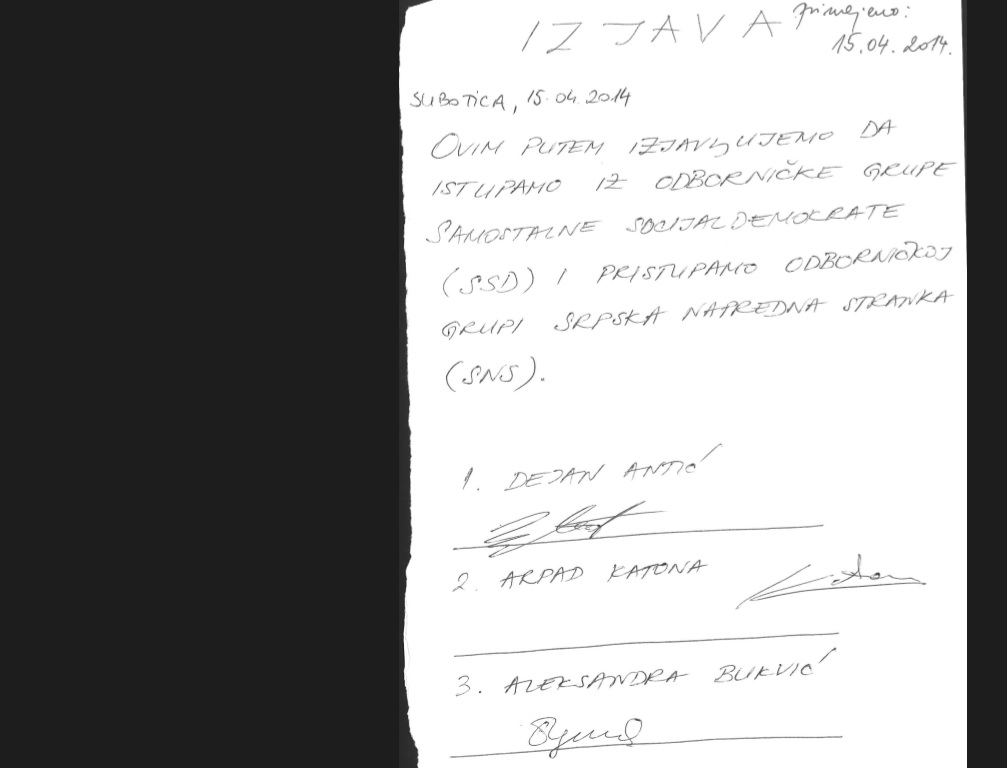 IZJAVA
primljeno:
15.04.2014.
SUBOTICA, 15.04.2014
OVIM PUTEM IZJAVLJUJEMO DA
ISTUPAMO IZ ODBORNIČKE GRUPE
SAMOSTALNE SOCIJALDEMOKRATE
(SSD) I PRISTUPAMO ODBORNIČKOJ
GRUPI SRPSKA NAPREDNA STRANKA
(SNS).
1. DEJAN ANTIĆ
2. ARPAD KATONA
3. ALEKSANDRA BUKVIĆ